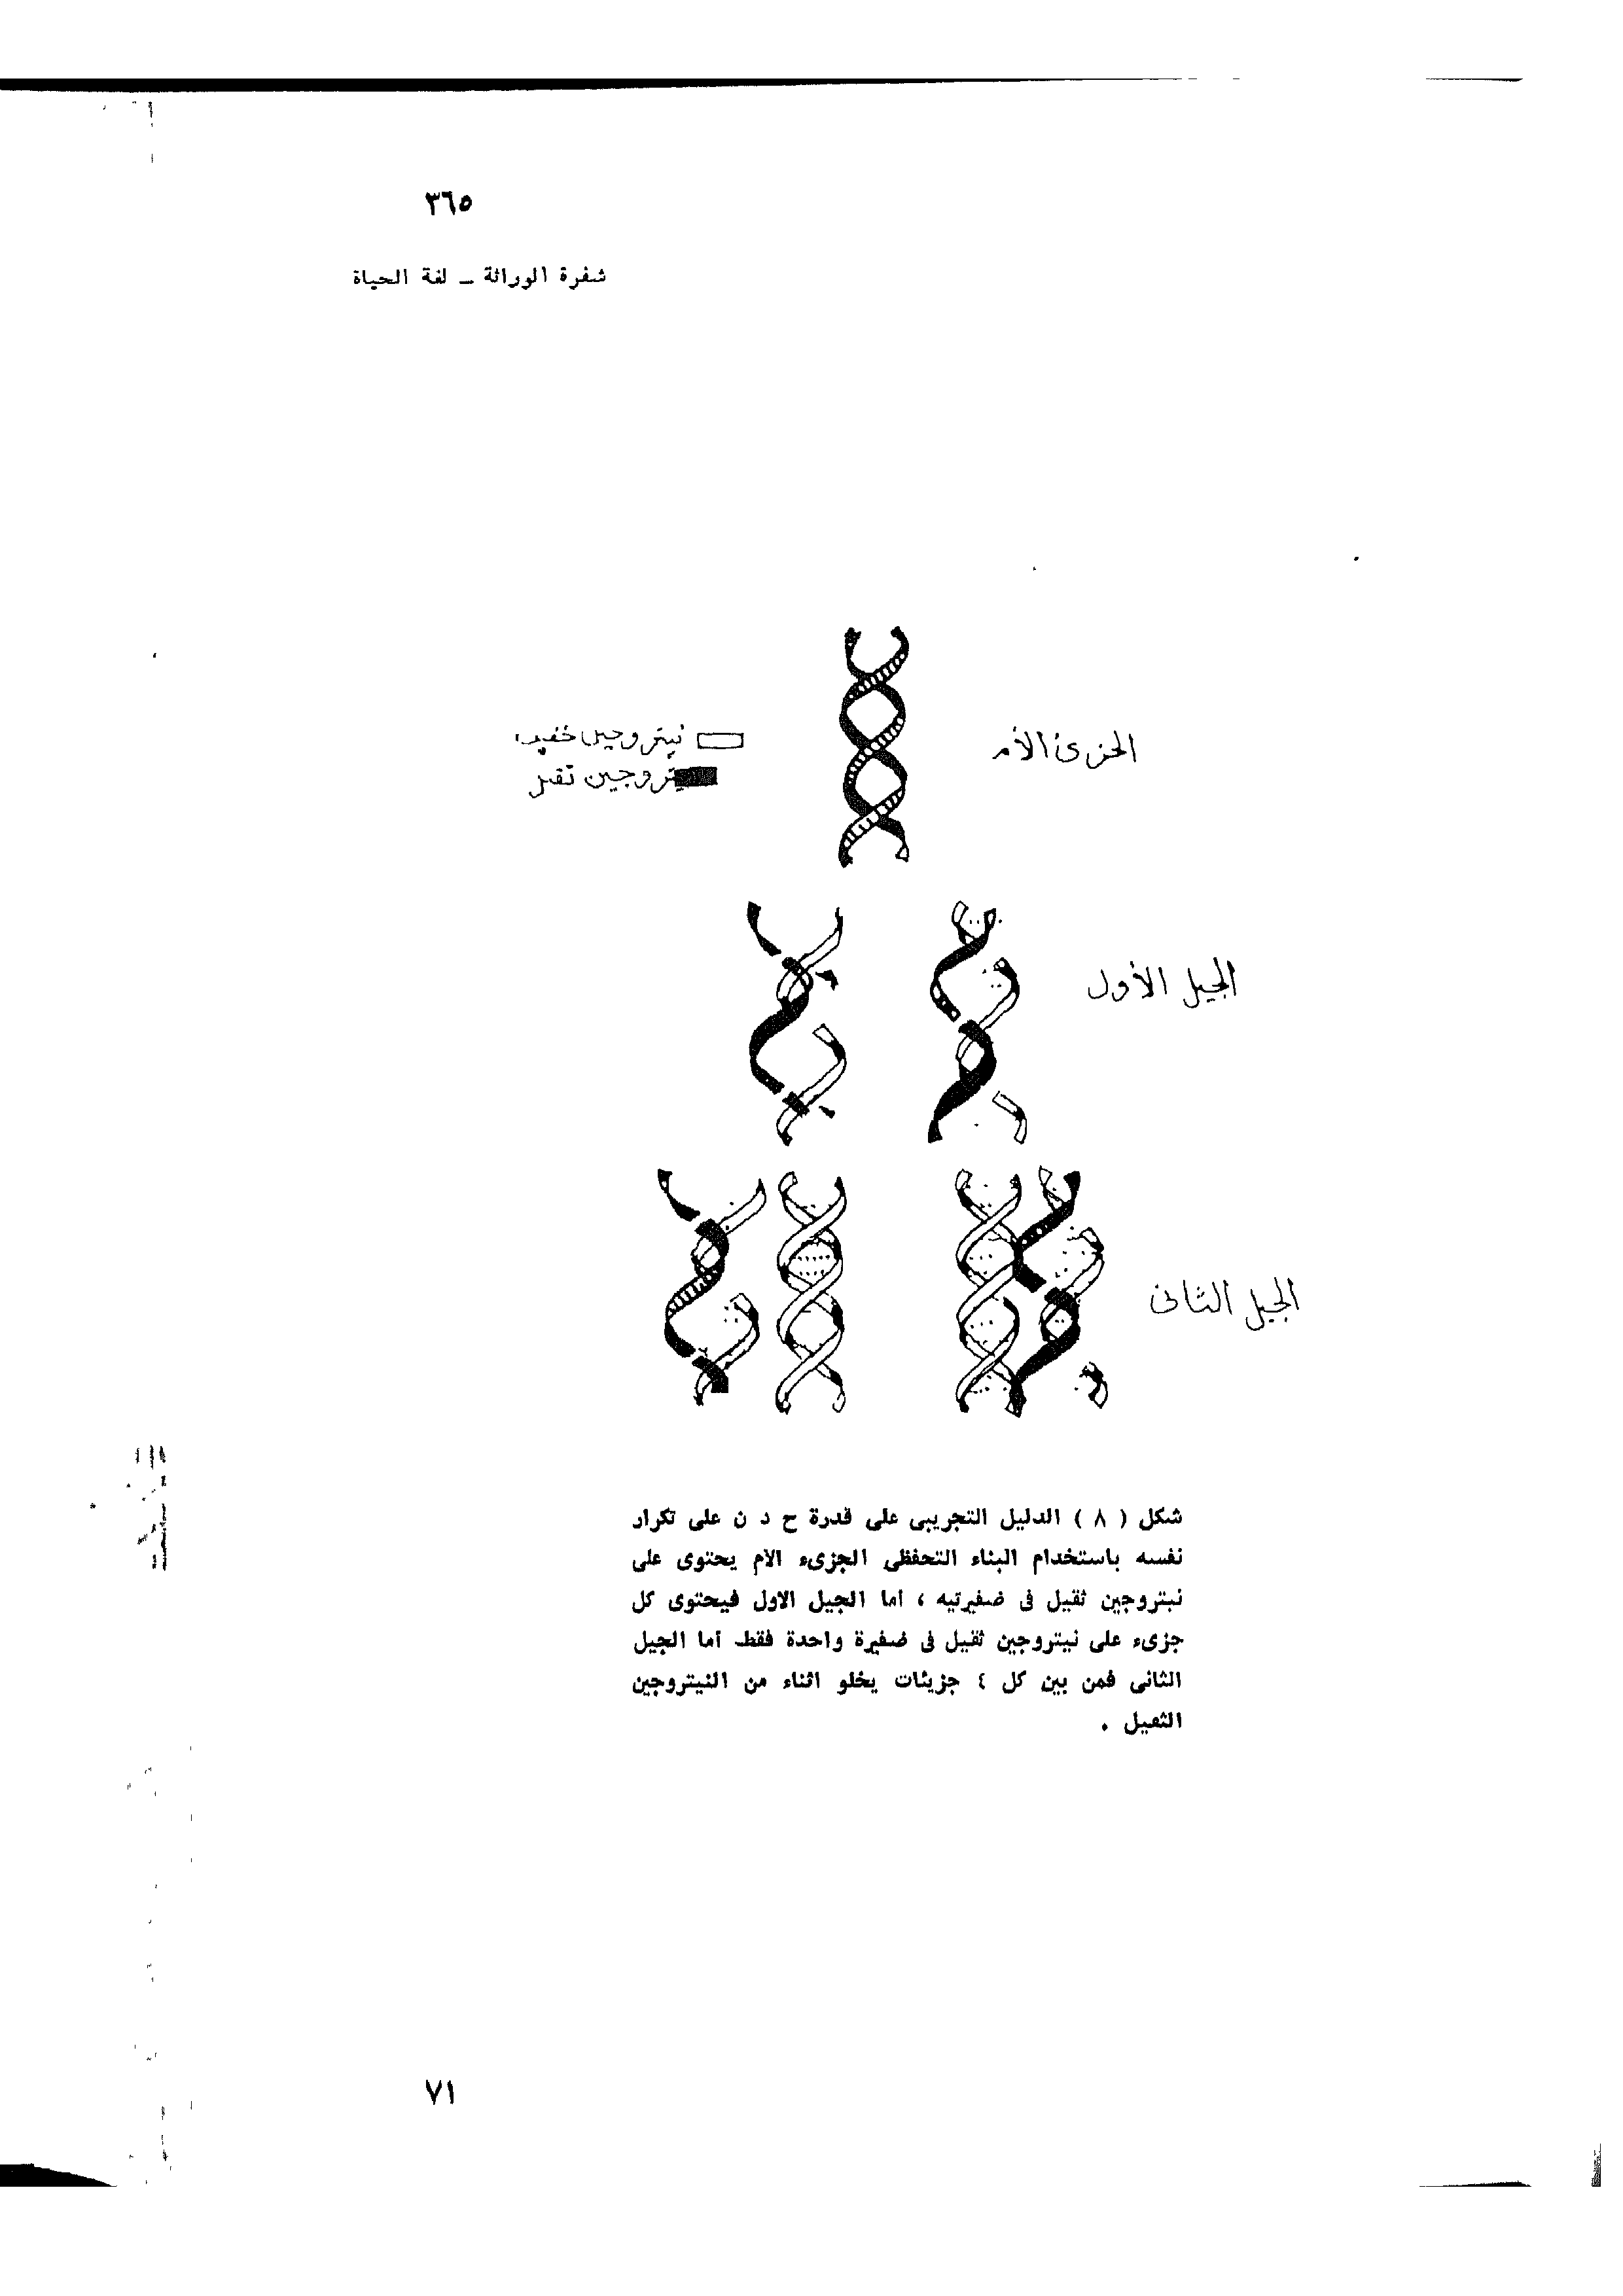 ٣٦٥
شفرة الوراثة ــ لغة الحياة
الجزئ الأم
نيتروجين خفيف
نيتروجين ثقيل
الجيل الأول
الجيل الثانى
شكل ( ٨ ) الدليل التجريبى على قدرة ح د ن على تكرار
نفسه باستخدام البناء التحفظى الجزىء الام يحتوى على
نيتروجين ثقيل فى ضفيرتيه ، اما الجيل الاول فيحتوى كل
جزىء على نيتروجين ثقيل فى ضفيرة واحدة فقط اما الجيل
الثانى فمن بين كل ٤ جزيئات يخلو اثناء من النيتروجين
الثقيل .
٧١